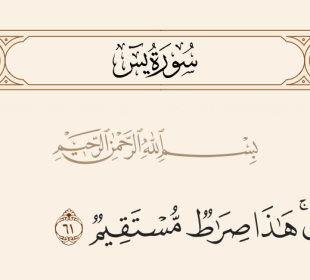 سُورَةُ يسٓ
بِسْمِ ٱللَّهِ ٱلرَّحْمَٰنِ ٱلرَّحِيمِ
هَٰذَا صِرَٰطٌ مُّسْتَقِيمٌ ٦١